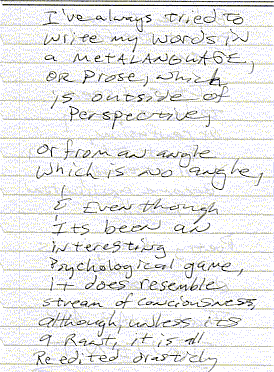 I've always tried to
write my words in
a METALANGUAGE,
OR Prose, which
is outside of
Perspective,
Or from an angle
which is no angle,
& Even though
Its been an
interesting
Psychological game,
it does resemble
stream of conciousness,
although, unless its
a Rant, it is all
Re edited drasticly